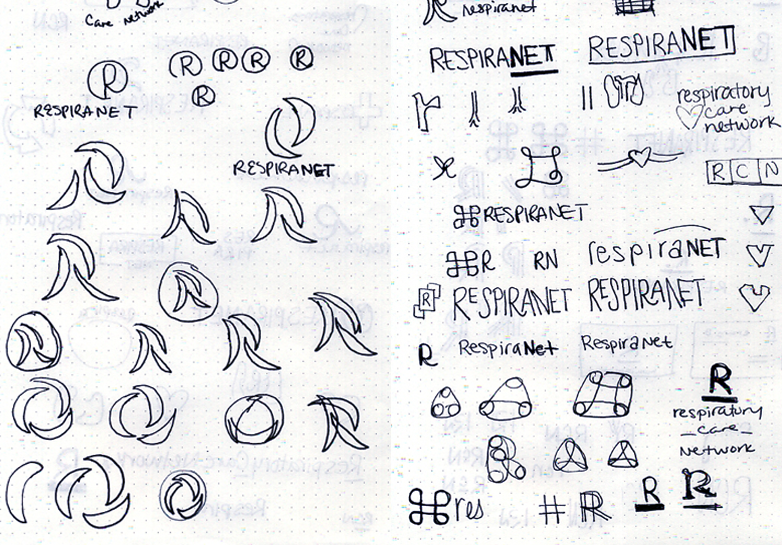 Care network
R
R R R
R
R
RESPIRANET
RESPIRANET
respiranet
RESPIRANET
RESPIRANET
respiratory
care
network
R C N
RESPIRANET
R
RN
respiraNET
R
RESPIRANET
RESPIRANET
R
RespiraNet
RespiraNet
R
respiratory
-care-
Network
⌘res
#
R
R
R